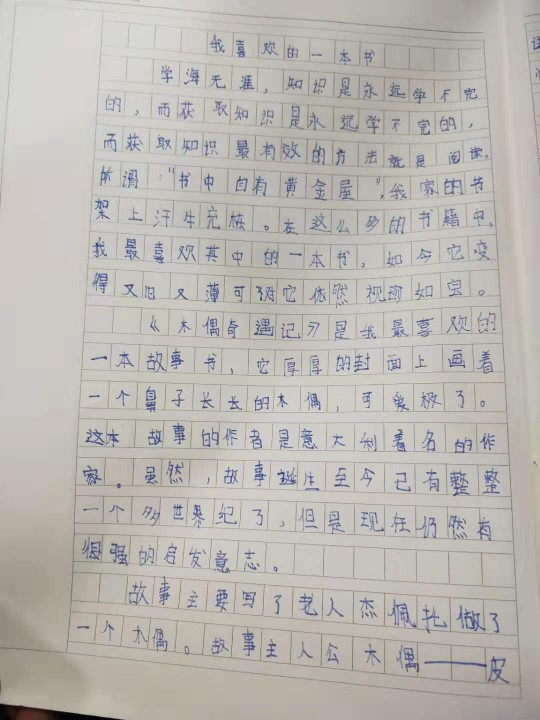 我喜欢的一本书
学海无涯，知识是永远学不完
的，而获取知识是永远学不完的，
而获取知识最有效的方法就是阅读。
所谓："书中自有黄金屋"，我家的书
架上汗牛充栋。在这么多的书籍中，
我最喜欢其中的一本书，如今它变
得又旧又薄可我对它依然视珍如宝。
《木偶奇遇记》是我最喜欢的
一本故事书，它厚厚的封面上画着
一个鼻子长长的木偶，可爱极了。
这本故事的作者是意大利着名的作
家。虽然，故事诞生至今已有整整
一个多世界纪了，但是现在仍然有
很强的启发意志。
故事主要写了老人杰佩托做了
一个木偶。故事主人公木偶——皮